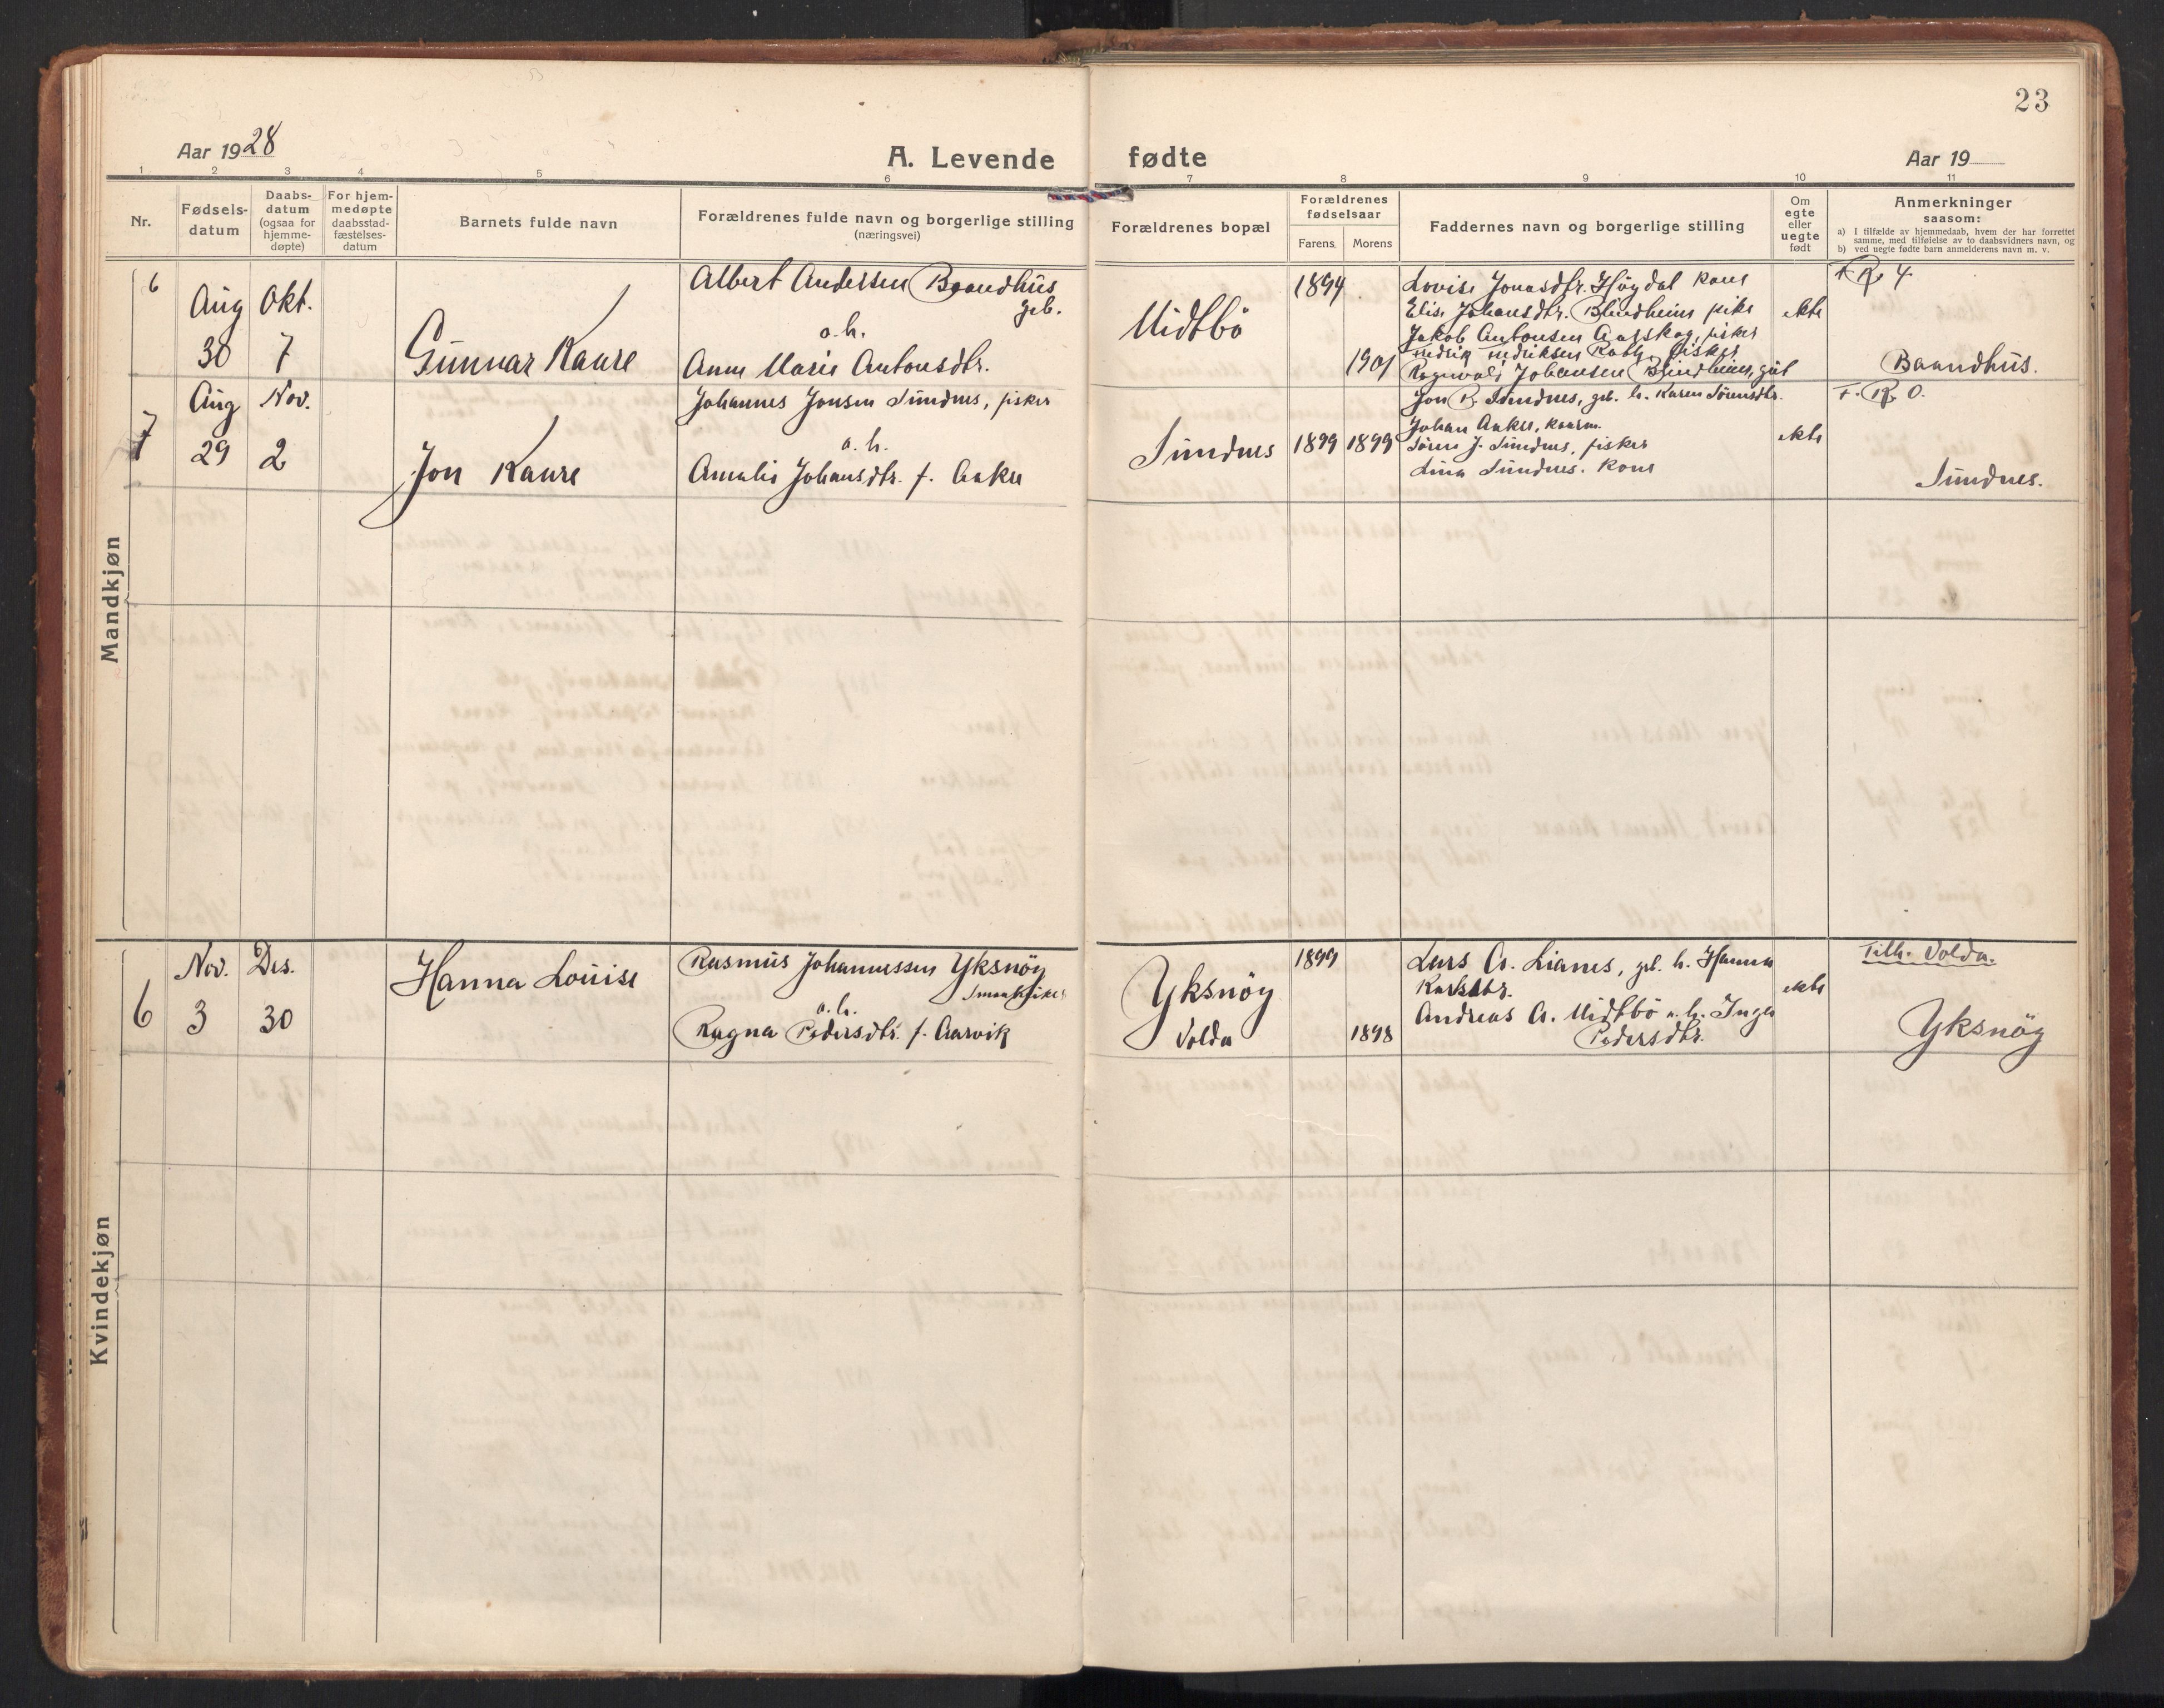 23
Aar 1928
A. Levende fødte
Aar 19
1 2 3 4 5 6 7 8 9 10 11
Nr.
Fødsels-
datum
Daabs-
datum
(ogsaa for
hjemme-
døpte)
For hjem-
medøpte
daabsstad-
fæstelses-
datum
Barnets fulde navn
Forældrenes fulde navn og borgerlige stilling
(næringsvei)
Forældrenes bopæl
Forældrenes
fødselsaar
Farens Morens
Faddernes navn og borgerlige stilling
Om
egte
eller
uegte
født
Anmerkninger
saasom:
a) I tilfælde av hjemmedaab, hvem der har forrettet
samme, med tilføielse av to daabsvidners navn, og
b) ved uegte fødte barn anmelderens navn m. v.
Mandkjøn
6
Aug Okt.
30 7
Gunnar Kaare
Albert Andersen Baandhus
geb.
o. h.
Anne Marie Antonsdtr.
Midtbö
1894
1901
Lovise Jonasdtr. Högdal kone
Elise Johansdtr. Blindheim pike
Jakob Antonsen Aarskog, fisker
Ragnvald Johansen Blindheim, gut
ekte
Baandhus.
7
Aug Nov.
29 2
Jon Kaare
Johannes Jonsen Sundnes, fisker
o. h.
Amalie Johansdtr. f. Aakre
Sundnes
1899 1899
Jon R. Sundnes, geb. h. Karen Sörensdtr.
Johan Aakre,
Sören J. Sundnes, fisker
Lina Sundnes. kone
ekte
F. R. O.
Sundnes.
Kvindekjøn
6
Nov. Des.
3 30
Hanna Louise
Rasmus Johannessen Yksnöy
o. h.
Ragna Pedersdtr. f. Aarvik
Yksnöy
Volda
1899
1898
Lars A. Lianes, geb. h. Hanna
Andreas A. Midtbö o. h. Inga
Pedersdtr.
ekte
Tilh. Volda.
Yksnöy